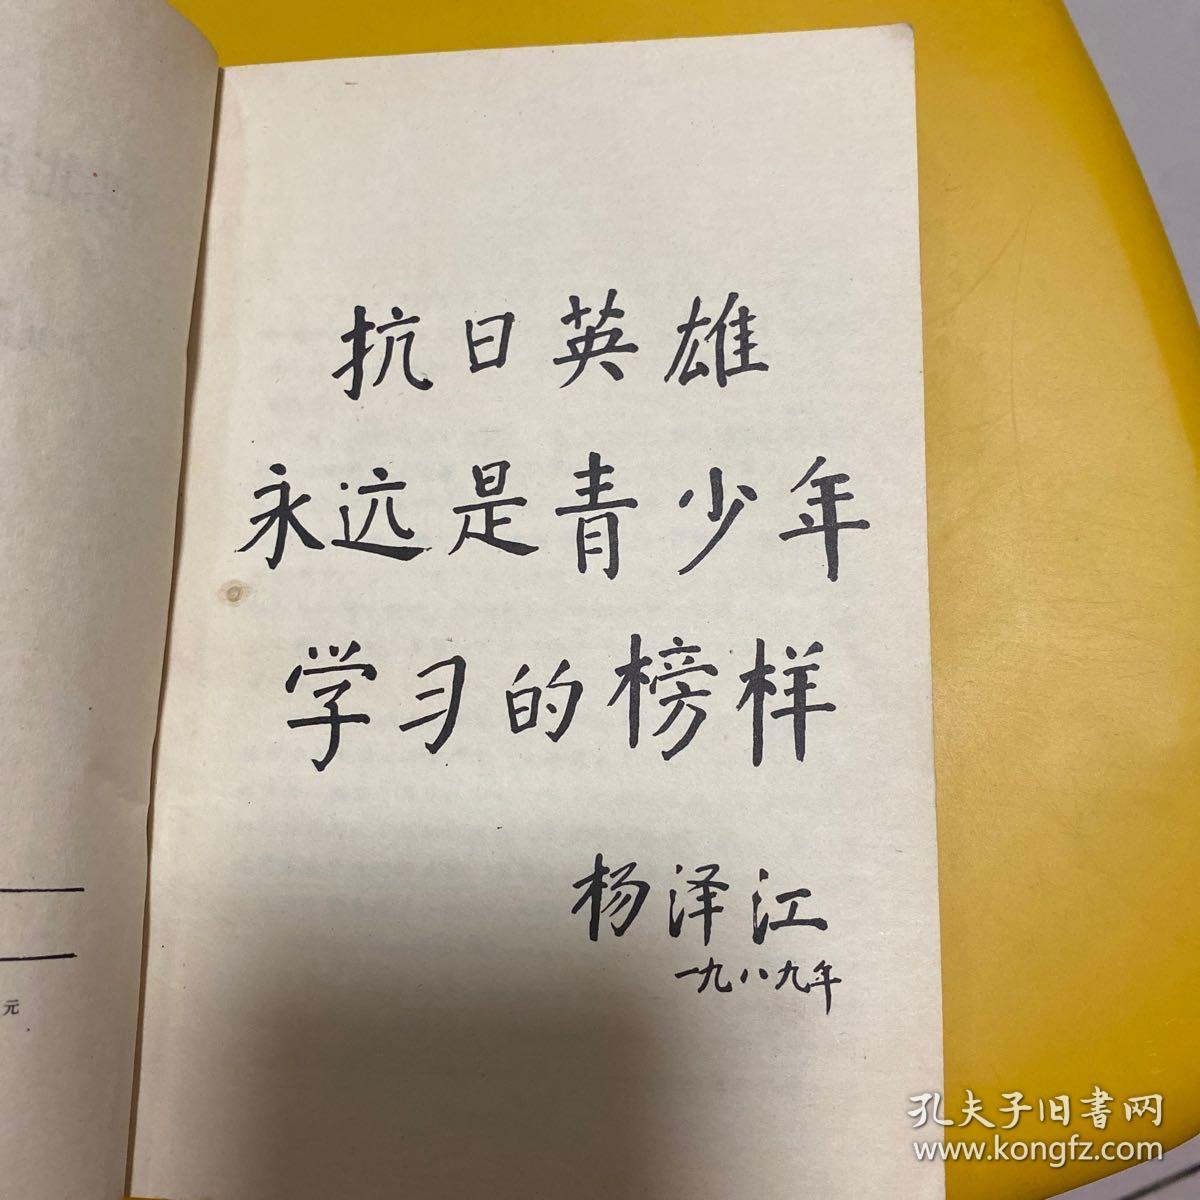 抗日英雄
永远是青少年
学习的榜样
杨泽江
一九八九年
元
孔夫子旧书网
www.kongfz.com